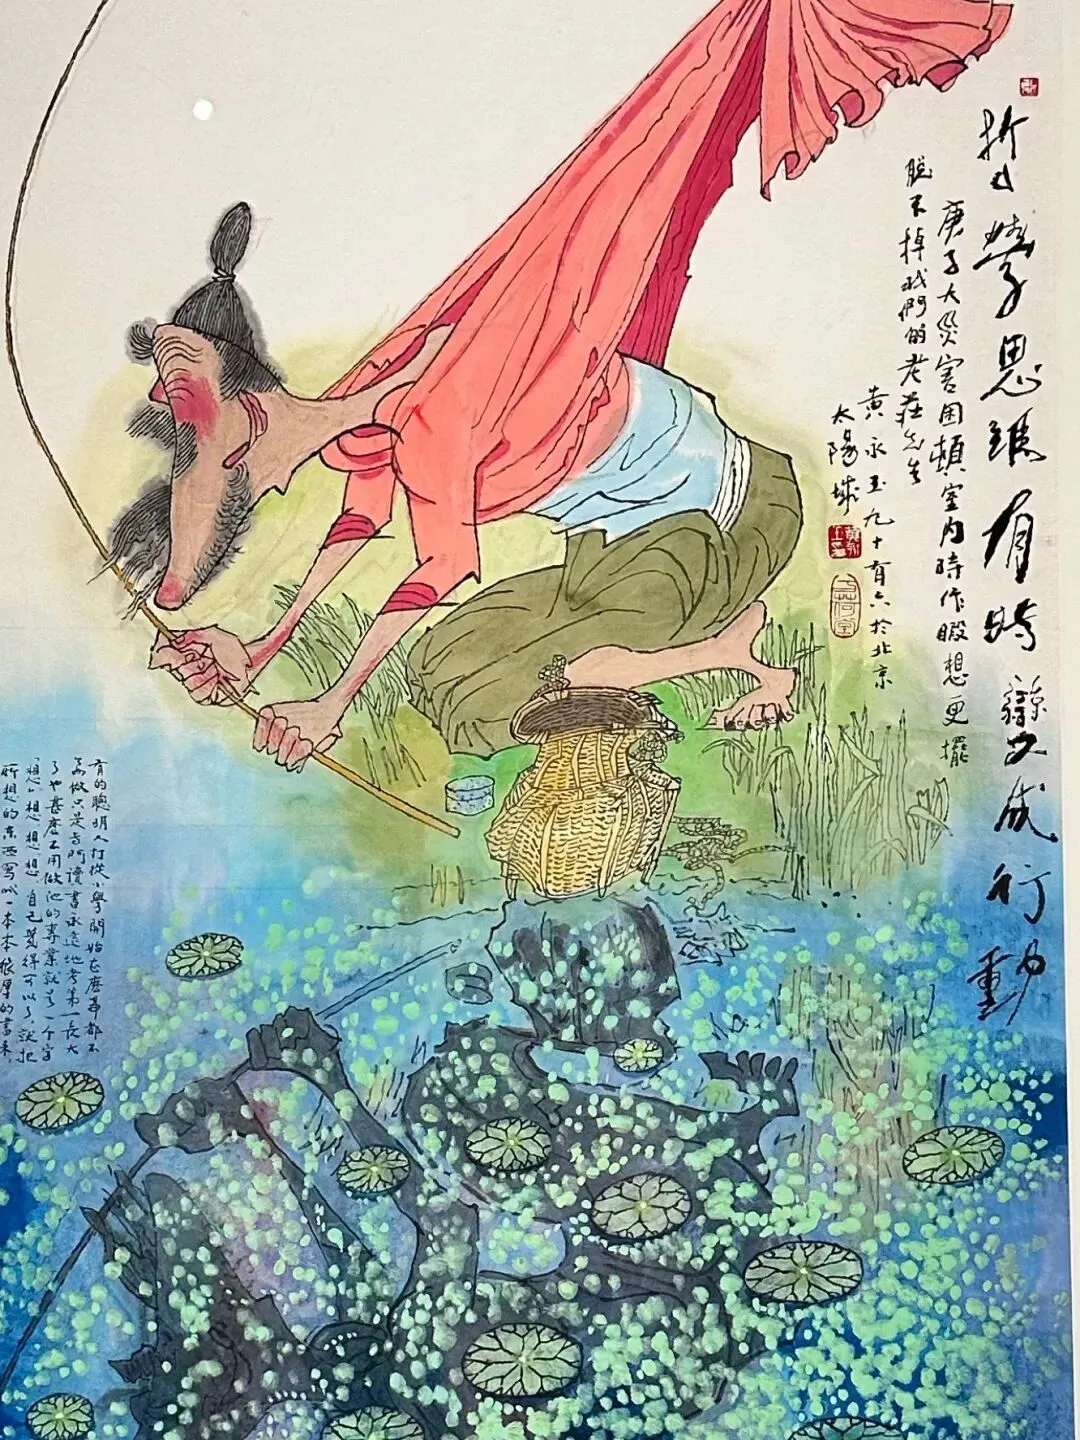 哲學思維有時變成行動
庚子大災害困頓室內時作暇想更擺
脫不掉我們的老莊先生
黃永玉九十有六於北京
太陽城
有的聰明人打從小學開始甚麼事都不
做只是專門讀書永遠地考第一長大
了也甚麼不用做他的專業就是一个字
「想」想想想自己覺得可以了就把
所想的東西寫成一本本很厚的書來。